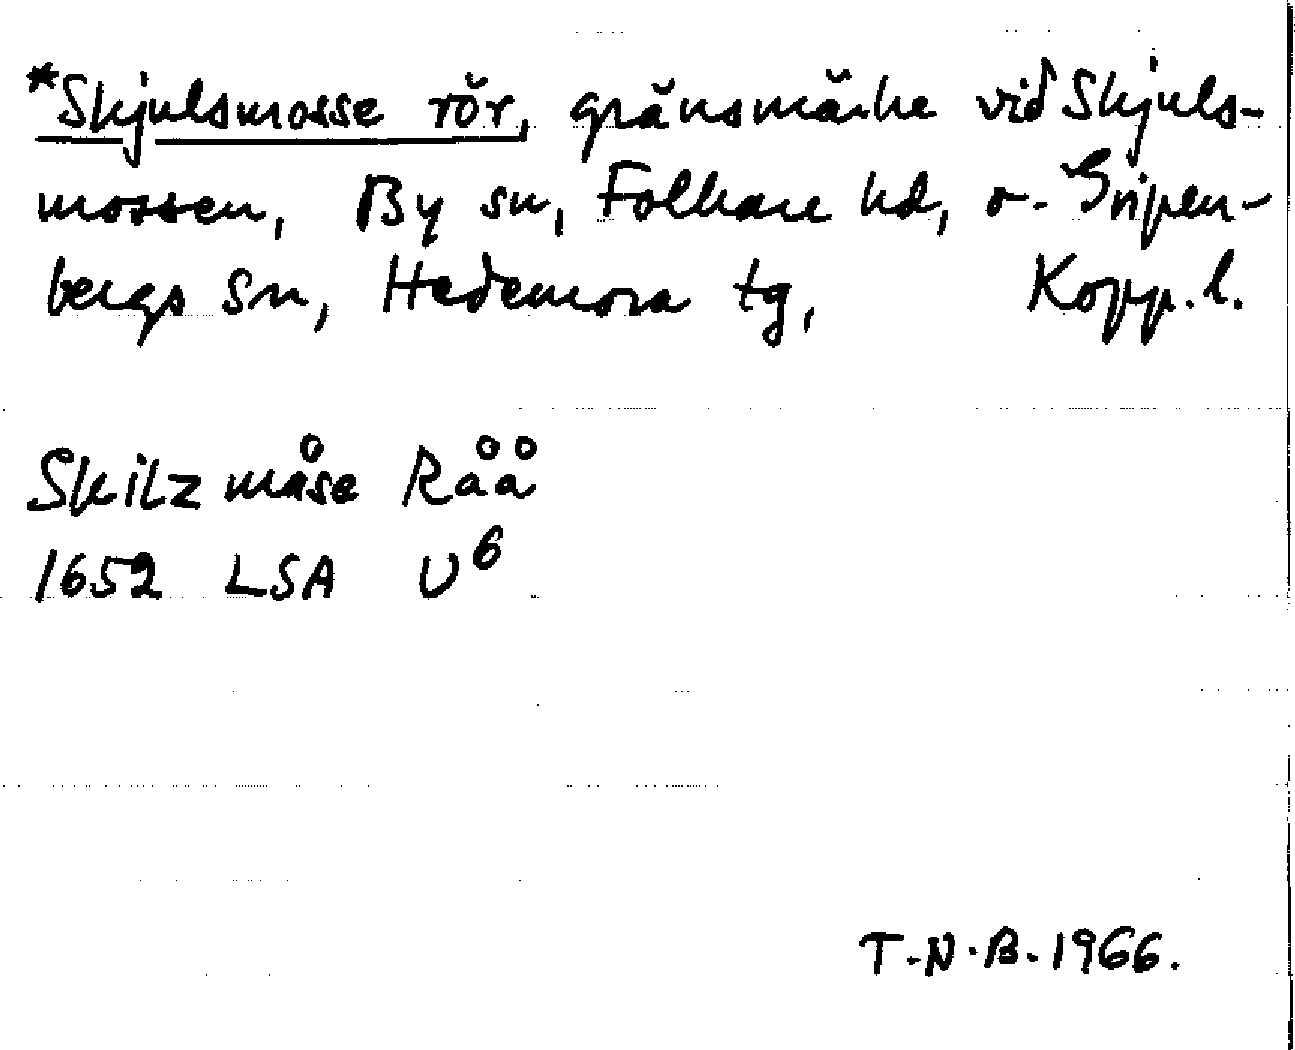 *Skjulsmosse rör, gränsmärke vid Skjuls-
mossen, By sn, Folkare hd, o. Gripen-
bergs sn, Hedemora tg, Kopp. l.
Skilz måse Råå
1652 LSA U⁶
T.N.B. 1966.